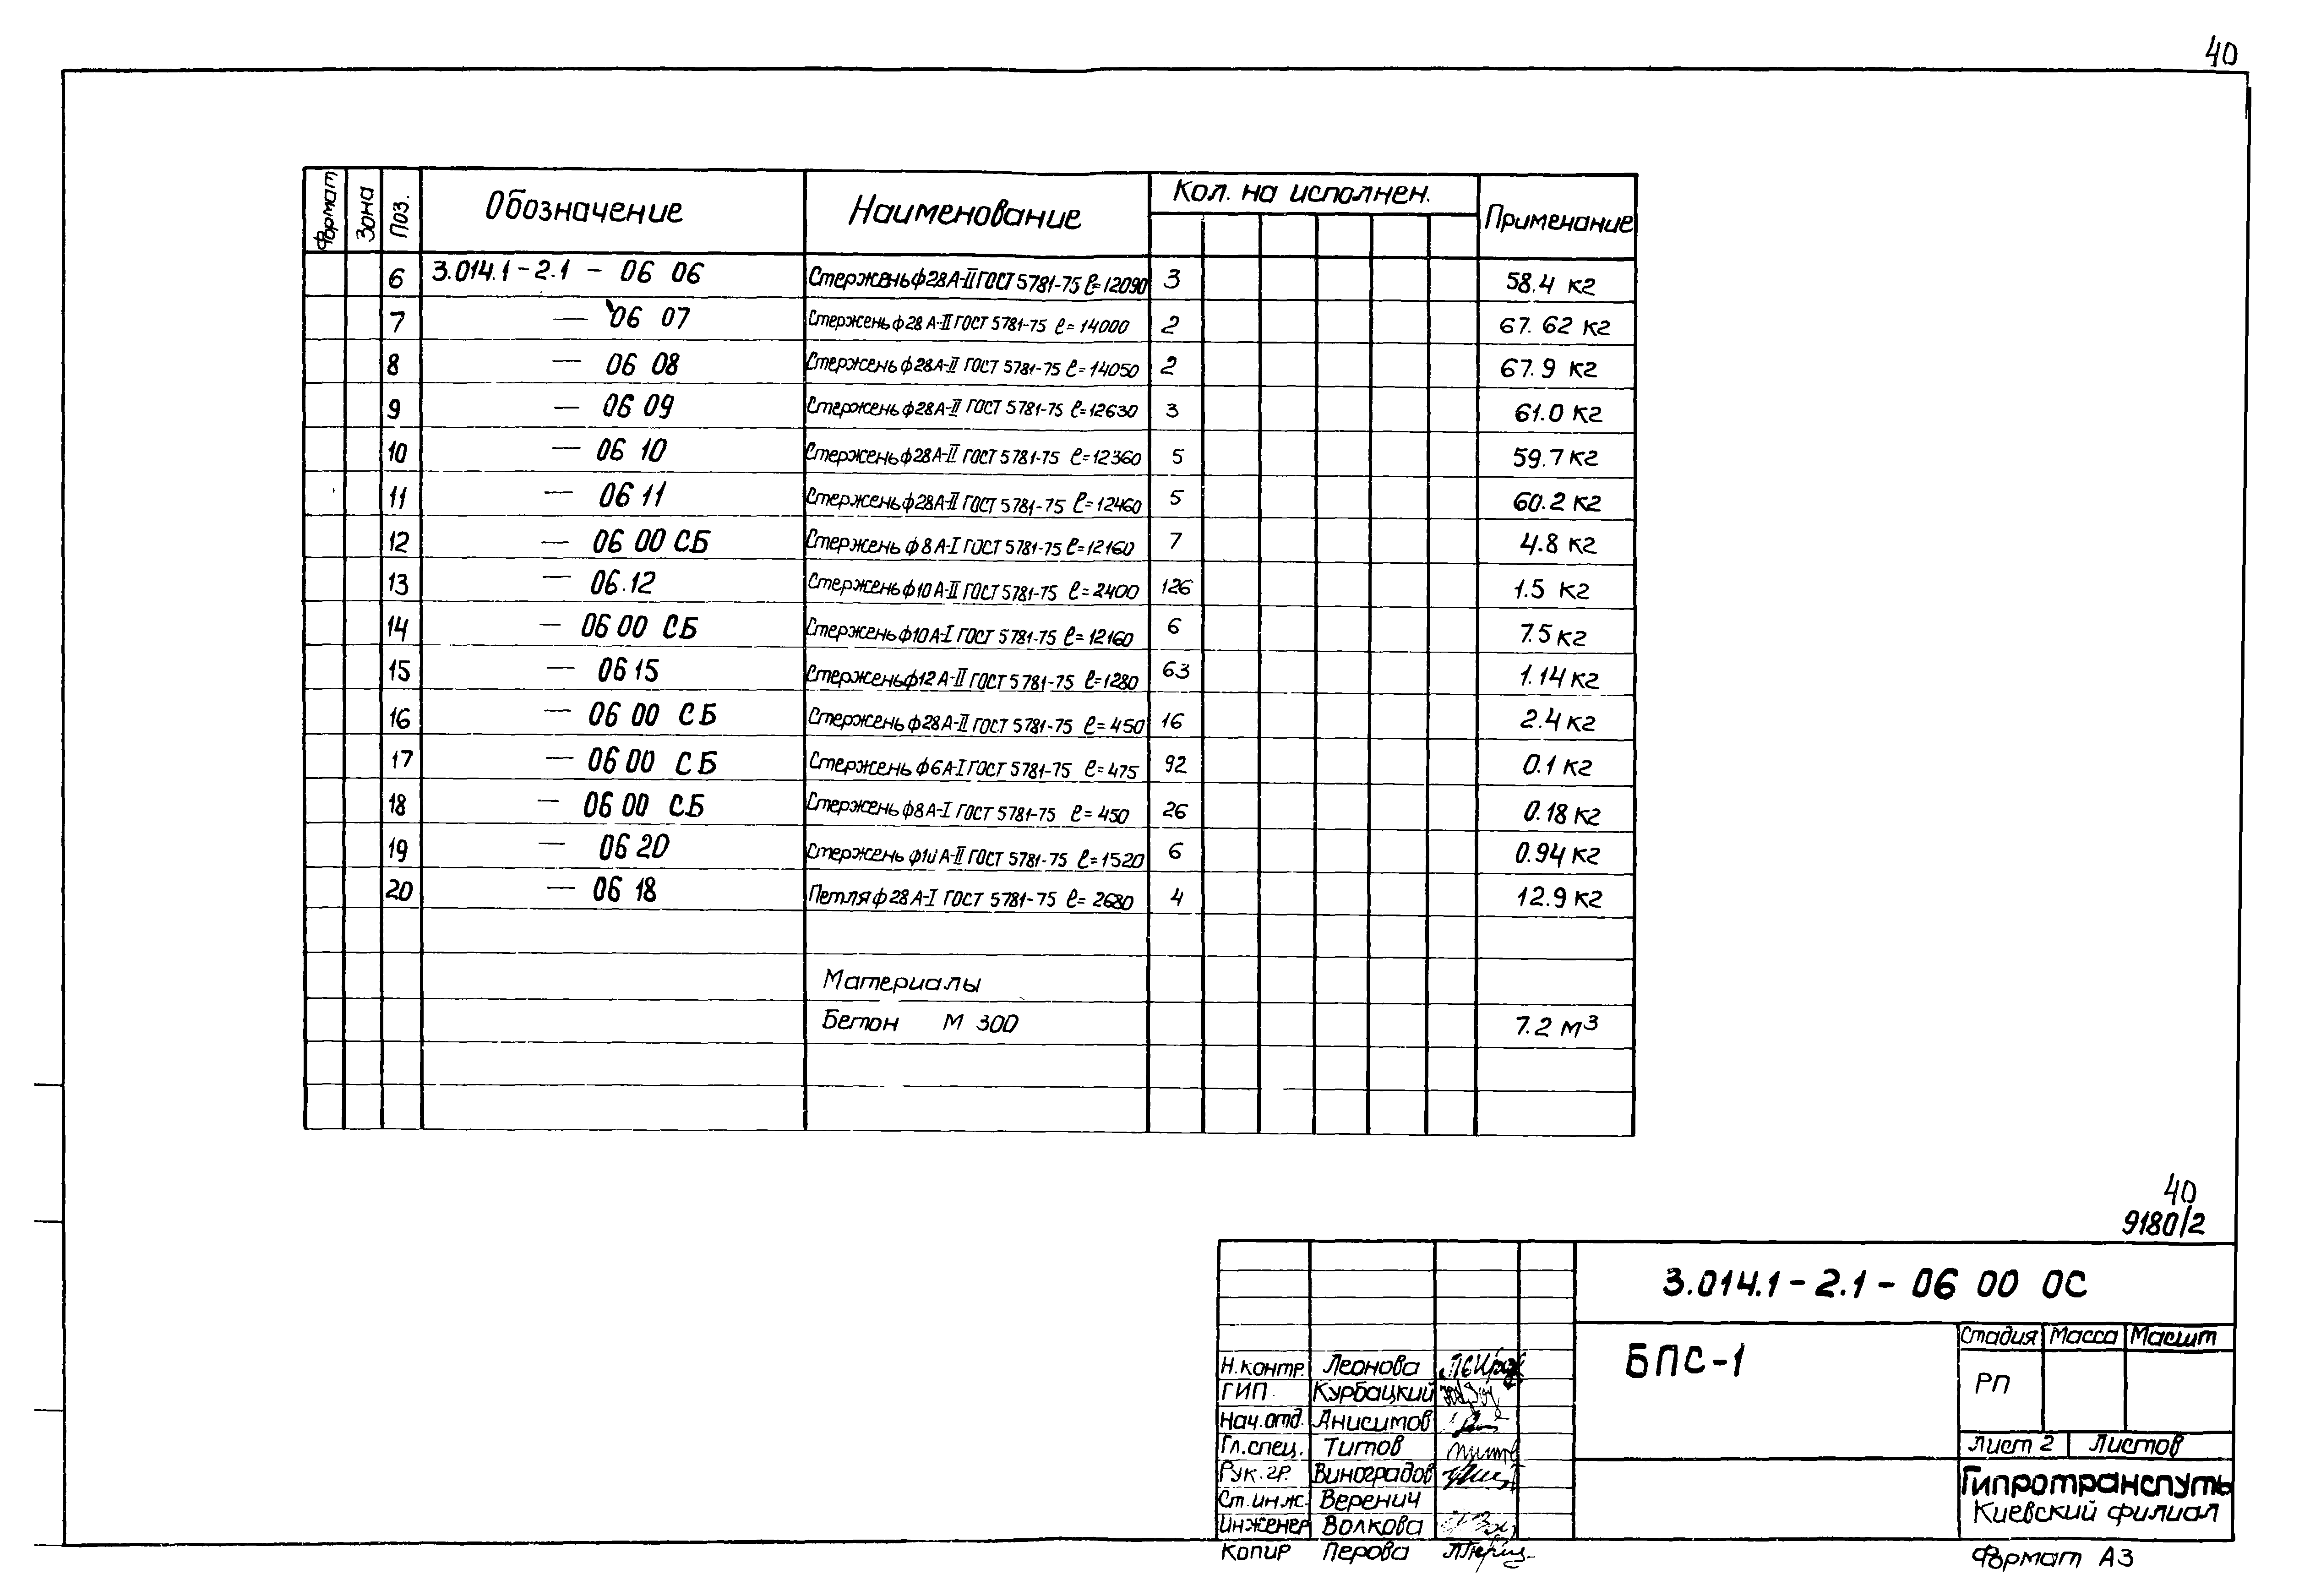 40
Формат Зона Поз. Обозначение Наименование Кол. на исполнен. Примечание
6 3.014.1-2.1 - 06 06 Стержень ф28А-II ГОСТ 5781-75 ℓ=12090 3 58.4 кг
7 — 06 07 Стержень ф28А-II ГОСТ 5781-75 ℓ=14000 2 67.62 кг
8 — 06 08 Стержень ф28А-II ГОСТ 5781-75 ℓ=14050 2 67.9 кг
9 — 06 09 Стержень ф28А-II ГОСТ 5781-75 ℓ=12630 3 61.0 кг
10 — 06 10 Стержень ф28А-II ГОСТ 5781-75 ℓ=12360 5 59.7 кг
11 — 06 11 Стержень ф28А-II ГОСТ 5781-75 ℓ=12460 5 60.2 кг
12 — 06 00 СБ Стержень ф8А-I ГОСТ 5781-75 ℓ=12160 7 4.8 кг
13 — 06.12 Стержень ф10А-II ГОСТ 5781-75 ℓ=2400 126 1.5 кг
14 — 06 00 СБ Стержень ф10А-I ГОСТ 5781-75 ℓ=12160 6 7.5 кг
15 — 06 15 Стержень ф12А-II ГОСТ 5781-75 ℓ=1280 63 1.14 кг
16 — 06 00 СБ Стержень ф28А-II ГОСТ 5781-75 ℓ=450 16 2.4 кг
17 — 06 00 СБ Стержень ф6А-I ГОСТ 5781-75 ℓ=475 92 0.1 кг
18 — 06 00 СБ Стержень ф8А-I ГОСТ 5781-75 ℓ=450 26 0.18 кг
19 — 06 20 Стержень ф10А-II ГОСТ 5781-75 ℓ=1520 6 0.94 кг
20 — 06 18 Петля ф28А-I ГОСТ 5781-75 ℓ=2680 4 12.9 кг
Материалы
Бетон М 300 7.2 м³
40
9180/2
3.014.1-2.1-06 00 ОС
БПС-1
Стадия Масса Масшт
РП
Лист 2 Листов
Гипротранспуть
Киевский филиал
Н.контр. Леонова
ГИП Курбацкий
Нач.отд. Анисимов
Гл.спец. Титов
Рук.гр. Виноградов
Ст.инж. Веренич
инженер Волкова
Копир Перова
Формат А3